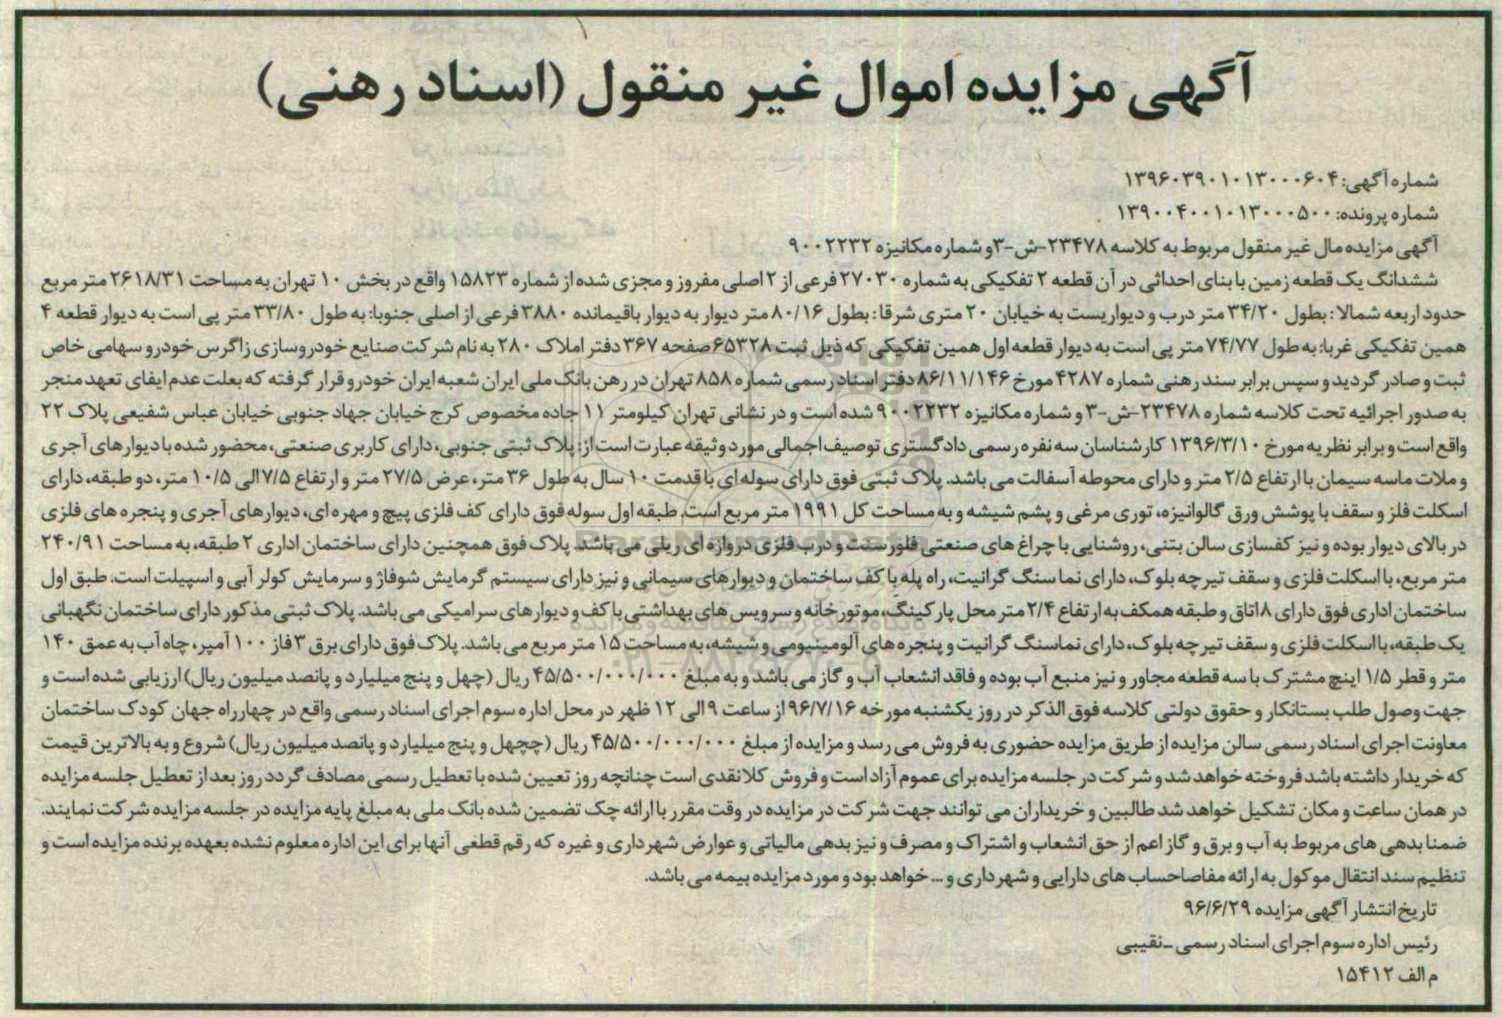 آگهی مزایده اموال غیر منقول (اسناد رهنی)
شماره آگهی: ۱۳۹۶۰۳۹۰۱۰۱۳۰۰۰۶۰۴
شماره پرونده: ۱۳۹۰۰۴۰۰۱۰۱۳۰۰۰۵۰۰
آگهی مزایده مال غیر منقول مربوط به کلاسه ۲۳۴۷۸-ش-۳ و شماره مکانیزه ۹۰۰۲۲۳۲
ششدانگ یک قطعه زمین با بنای احداثی در آن قطعه ۲ تفکیکی به شماره ۲۷۰۳۰ فرعی از ۲ اصلی مفروز و مجزی شده از شماره ۱۵۸۲۳ واقع در بخش ۱۰ تهران به مساحت ۲۶۱۸/۳۱ متر مربع
حدود اربعه شمالا : بطول ۳۴/۲۰ متر درب و دیواریست به خیابان ۲۰ متری شرقا : بطول ۸۰/۱۶ متر دیوار به دیوار باقیمانده ۳۸۸۰ فرعی از اصلی جنوبا: به طول ۳۳/۸۰ متر پی است به دیوار قطعه ۴
همین تفکیکی غربا: به طول ۷۴/۷۷ متر پی است به دیوار قطعه اول همین تفکیکی که ذیل ثبت ۶۵۳۲۸ صفحه ۳۶۷ دفتر املاک ۲۸۰ به نام شرکت صنایع خودروسازی زاگرس خودرو سهامی خاص
ثبت و صادر گردید و سپس برابر سند رهنی شماره ۴۲۸۷ مورخ ۸۶/۱۱/۱۴۶ دفتر اسناد رسمی شماره ۸۵۸ تهران در رهن بانک ملی ایران شعبه ایران خودرو قرار گرفته که بعلت عدم ایفای تعهد منجر
به صدور اجرائیه تحت کلاسه شماره ۲۳۴۷۸-ش-۳ و شماره مکانیزه ۹۰۰۲۲۳۲ شده است و در نشانی تهران کیلومتر ۱۱ جاده مخصوص کرج خیابان جهاد جنوبی خیابان عباس شفیعی پلاک ۲۲
واقع است و برابر نظریه مورخ ۱۳۹۶/۳/۱۰ کارشناسان سه نفره رسمی دادگستری توصیف اجمالی مورد وثیقه عبارت است از: پلاک ثبتی جنوبی، دارای کاربری صنعتی، محضور شده با دیوارهای آجری
و ملات ماسه سیمان با ارتفاع ۲/۵ متر و دارای محوطه آسفالت می باشد. پلاک ثبتی فوق دارای سوله ای با قدمت ۱۰ سال به طول ۳۶ متر، عرض ۲۷/۵ متر و ارتفاع ۷/۵ الی ۱۰/۵ متر، دو طبقه، دارای
اسکلت فلز و سقف با پوشش ورق گالوانیزه، توری مرغی و پشم شیشه و به مساحت کل ۱۹۹۱ متر مربع است. طبقه اول سوله فوق دارای کف فلزی پیچ و مهره ای، دیوارهای آجری و پنجره های فلزی
در بالای دیوار بوده و نیز کفسازی سالن بتنی، روشنایی با چراغ های صنعتی فلورسنت و درب فلزی دروازه ای ریلی می باشد. پلاک فوق همچنین دارای ساختمان اداری ۲ طبقه، به مساحت ۲۴۰/۹۱
متر مربع، با اسکلت فلزی و سقف تیرچه بلوک، دارای نما سنگ گرانیت، راه پله با کف ساختمان و دیوارهای سیمانی و نیز دارای سیستم گرمایش شوفاژ و سرمایش کولر آبی و اسپیلت است. طبق اول
ساختمان اداری فوق دارای ۸ اتاق و طبقه همکف به ارتفاع ۲/۴ متر محل پارکینگ، موتورخانه و سرویس های بهداشتی با کف و دیوارهای سرامیکی می باشد. پلاک ثبتی مذکور دارای ساختمان نگهبانی
یک طبقه، با اسکلت فلزی و سقف تیرچه بلوک، دارای نماسنگ گرانیت و پنجره های آلومینیومی و شیشه، به مساحت ۱۵ متر مربع می باشد. پلاک فوق دارای برق ۳ فاز ۱۰۰ آمپر، چاه آب به عمق ۱۴۰
متر و قطر ۱/۵ اینچ مشترک با سه قطعه مجاور و نیز منبع آب بوده و فاقد انشعاب آب و گاز می باشد و به مبلغ ۴۵/۵۰۰/۰۰۰/۰۰۰ ریال (چهل و پنج میلیارد و پانصد میلیون ریال) ارزیابی شده است و
جهت وصول طلب بستانکار و حقوق دولتی کلاسه فوق الذکر در روز یکشنبه مورخه ۹۶/۷/۱۶ از ساعت ۹ الی ۱۲ ظهر در محل اداره سوم اجرای اسناد رسمی واقع در چهارراه جهان کودک ساختمان
معاونت اجرای اسناد رسمی سالن مزایده از طریق مزایده حضوری به فروش می رسد و مزایده از مبلغ ۴۵/۵۰۰/۰۰۰/۰۰۰ ریال (چچهل و پنج میلیارد و پانصد میلیون ریال) شروع و به بالاترین قیمت
که خریدار داشته باشد فروخته خواهد شد و شرکت در جلسه مزایده برای عموم آزاد است و فروش کلا نقدی است چنانچه روز تعیین شده با تعطیل رسمی مصادف گردد روز بعد از تعطیل جلسه مزایده
در همان ساعت و مکان تشکیل خواهد شد طالبین و خریداران می توانند جهت شرکت در مزایده در وقت مقرر با ارائه چک تضمین شده بانک ملی به مبلغ پایه مزایده در جلسه مزایده شرکت نمایند.
ضمنا بدهی های مربوط به آب و برق و گاز اعم از حق انشعاب و اشتراک و مصرف و نیز بدهی مالیاتی و عوارض شهرداری و غیره که رقم قطعی آنها برای این اداره معلوم نشده بعهده برنده مزایده است و
تنظیم سند انتقال موکول به ارائه مفاصاحساب های دارایی و شهرداری و ... خواهد بود و مورد مزایده بیمه می باشد.
تاریخ انتشار آگهی مزایده ۹۶/۶/۲۹
رئیس اداره سوم اجرای اسناد رسمی -نقیبی
م الف ۱۵۴۱۲
ParsNamadData